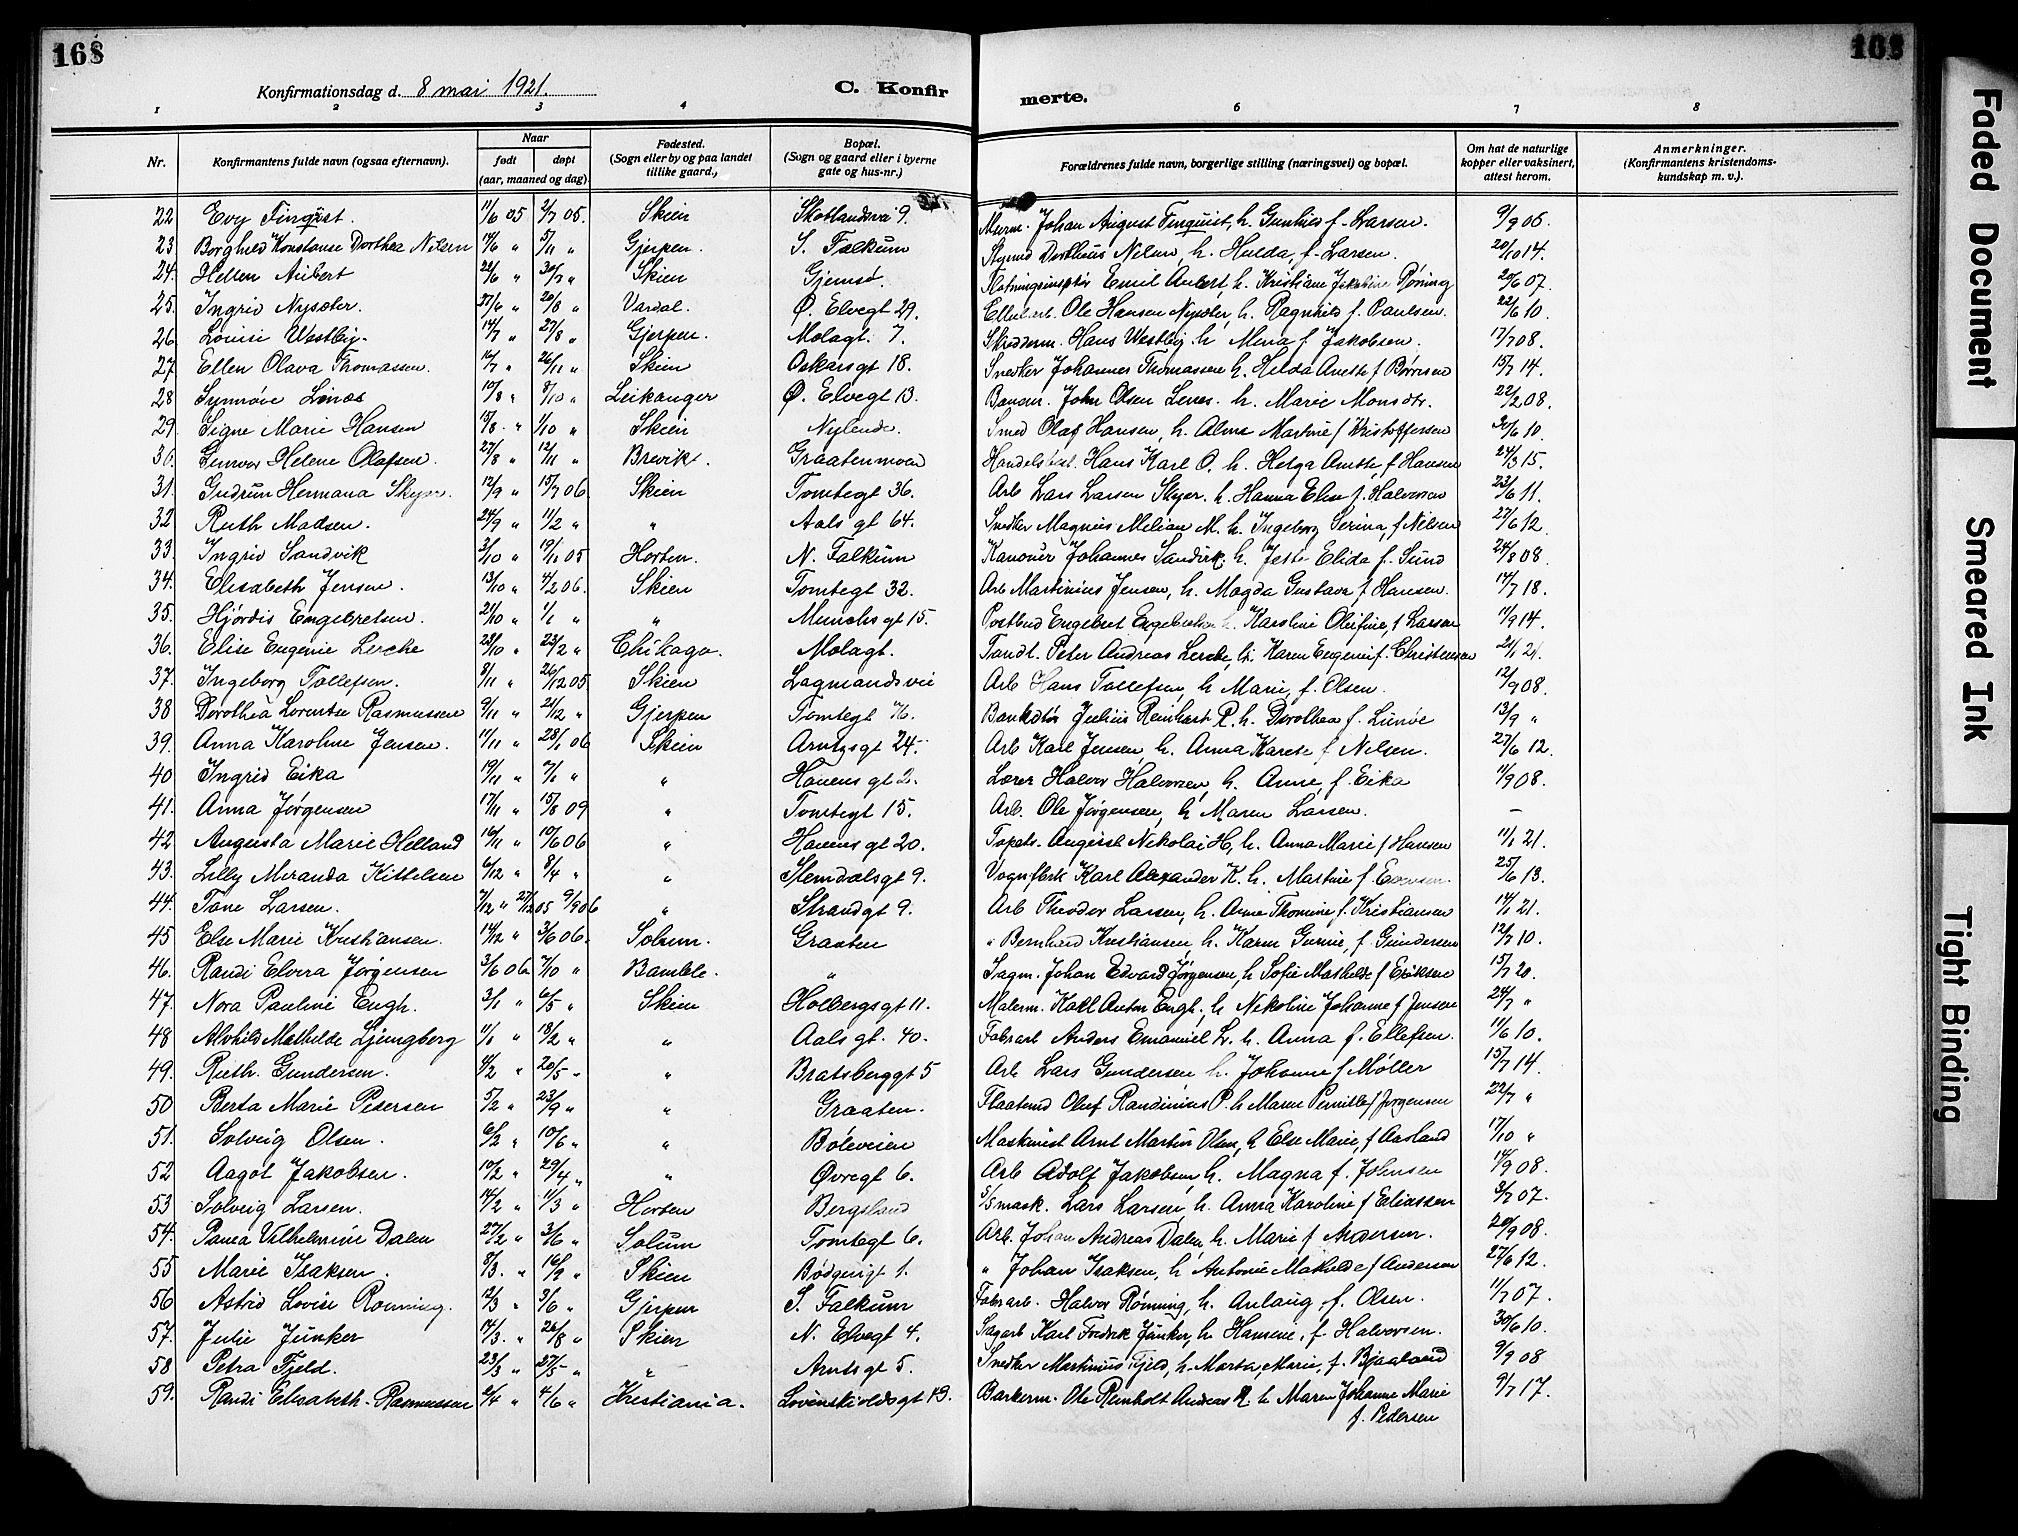 168
168
Konfirmationsdag d. 8 mai 1921.
C. Konfir
merte.
1 2 3 4 6 7 8
Nr. Konfirmantens fulde navn (ogsaa efternavn). Naar født døpt (aar, maaned og dag) Fødested. (Sogn eller by og paa landet tillike gaard.) Bopæl. (Sogn og gaard eller i byerne gate og hus-nr.) Forældrenes fulde navn, borgerlige stilling (næringsvei) og bopæl. Om hat de naturlige kopper eller vaksinert, attest herom. Anmerkninger. (Konfirmantens kristendomskundskap m. v.).
22 Evy Finquist. 11/6 05 2/7 05. Skien Skotlandsvei 9. Murm. Johan August Finquist, h. Gunhild f. Larsen. 9/9 06
23 Borghild Konstanse Dorthea Nilsen 14/6 " 5/11 " Gjerpen. S. Falkum Dorthius Nilsen, h. Hulda, f. Larsen. 20/10 14.
24. Hellen Aubert 22/6 " 30/7 " Skien Gjemsø. Fløtningsinspktør Emil Aubert, h. Kristiane Jakobine Røning 20/6 07.
25. Ingrid Nysæter. 27/6 " 20/8 " Vardal. Ø. Elvegt 29. Ole Hansen Nysæter, h. Ragnhild f. Paulsen. 22/6 10.
26. Lovise Westbÿ. 14/7 " 27/8 " Gjerpen. Molagt. 7. Skredderm. Hans Westbÿ h. Mina f. Jakobsen. 17/7 08.
27 Ellen Olava Thomassen. 16/7 " 26/11 " Skien Oskarsgt 18. Snedker Johannes Thomassen h. Hilda Anette f Børresen 15/7 14.
28 Synnøve Linæs 10/8 " 8/10 " Leikanger Ø. Elvegt 13. John Olsen Lenes. h. Marie Monsdtr. 22/2 08.
29. Signe Marie Hansen 15/8 " 1/10 " Skien Nylende. Smed Olaf Hansen, h. Alma Martine f Kristoffersen 30/6 10.
30. Gunvor Helene Olafsen. 27/8 " 12/11 " Brevik. Graatenmoen Handelsbest. Hans Karl O. h. Helga Anette, f Hansen 24/3 15.
31. Gudrun Hermana Skyer. 12/9 " 15/7 06. Skien Tomtegt 36. Arb Lars Larsen Skyer. h. Hanna Elise f. Halvorsen 23/6 11.
32 Ruth Madsen. 24/9 " 11/2 " " Aals gt 64. Snedker Magnus Milian M. h. Ingeborg Serina, f Nilsen 27/6 12.
33. Ingrid Sandvik 3/10 " 19/11 05 Horten. N. Falkum Kanoner Johannes Sandvik. h. Elida f. Sund 24/8 08.
34. Elisabeth Jensen. 13/10 " 4/2 06. Skien Tomtegt 32. Arb Martinius Jensen, h. Magda Gustava f Hansen. 14/7 18.
35. Hjørdis Engebretsen. 21/10 " 1/1 " " Munchsgt 15. Postbud Engebret Engebretsen h. Karoline Olefine, f Larsen 11/9 14.
36. Elise Eugenie Lerche 23/10 " 23/2 " Chikago. Molagt. Tandl. Peter Andreas Lerche, h. Karen Eugenie f. Christensen 21/1 21.
37. Ingeborg Tollefsen. 8/11 " 26/12 05 Skien Lagmandsvei Arb Hans Tollefsen, h Marie, f. Olsen. 12/9 08.
38 Dorothea Lorentse Rasmussen 9/11 " 21/12 " Gjerpen Tomtegt 76. Julius Reinhart R. h. Dorothea f. Lunøe 13/9 "
39. Anna Karoline Jensen. 11/11 " 28/1 06 Skien Arntzsgt 24. Arb Karl Jensen, h. Anna Karese f Nilsen. 27/6 12.
40 Ingrid Eika 19/11 " 7/1 " " Hauens gt 2. Lærer Halvor Halvorsen, h. Anne, f. Eika 11/9 08.
41. Anna Jørgensen 17/11 " 15/8 09 " Tomtegt 15. Arb. Ole Jørgensen, h Maren Larsen. —
42 Augusta Marie Helland 16/11 " 10/6 06 " Hauens gt 20. Tapets. August Nikolai H, h. Anna Marie f Hansen 11/1 21.
43. Lilly Miranda Kittelsen 6/12 " 8/4 " " Stendalsgt 9. Vognflerk Karl Alexander K. h. Martine f 25/6 13.
44. Tone Larsen. 7/12 " 27/12 05 9/9 06 " Strandgt 9. Arb Theodor Larsen, h. Anne Thomine f. Kristiansen 14/1 21.
45 Else Marie Kristiansen. 14/12 " 3/6 06. Solum. Graaten " Bernhard Kristiansen h. Karen Gurine, f. Gundersen 12/7 10.
46. Randi Elvira Jørgensen 3/6 06 7/10 " Bamble. " Sagm. Johan Edvard Jørgensen, h Sofie Mathilde f Eriksen 15/7 20.
47. Nora Pauline Engh. 3/1 " 6/5 " Skien Holbergsgt 11. Malerm. Karl Anton Engh., h Nikoline Johanne f Jensen 24/7 "
48 Alvhild Mathilde Ljungberg 11/1 " 18/2 " " Aalsgt. 40. Fabrarb Anders Emanuel L. h. Anna f. Ellefsen. 11/6 10.
49. Ruth. Gundersen. 4/2 " 20/5 " " Bratsberggt 5 Arb Lars Gundersen h. Johanne f Møller 15/7 14.
50 Berta Marie Petersen 5/2 " 23/9 " " Graaten. Oluf Randinius P. h Maren Pernille f Jørgensen 22/7 "
51. Solveig Olsen. 6/2 " 10/6 " " Bøleveien Maskinist Arnt Martin Olsen, h Else Marie, f Aasland 17/10 "
52 Aagot Jakobsen. 10/2 " 29/4 " " Øvregt 6. Arb Adolf Jakobsen, h. Magna f. Johnsen 14/9 08.
53 Solveig Larsen. 14/2 " 11/3 " Horten Bergsland Lars Larsen, h. Anna Karoline f Eliassen 3/7 07.
54. Paula Vilhelmine Dalen 27/2 " 3/6 " Solum Tomtegt 6. Arb. Johan Andreas Dalen h. Marie f Andersen. 20/9 08.
55 Marie Isaksen. 8/3. " 16/9 " Skien Bødgerigt 1. " Johan Isaksen, h Antonie Mathilde f Anderson 27/6 12.
56 Astrid Lovise Rønning. 12/3 " 3/6 " Gjerpen S. Falkum Fabrarb. Halvor Rønning, h. Anlaug, f. Olsen. 11/7 07.
57. Julie Junker 14/3. " 26/8 " Skien N. Elvegt 4. Sagarb Karl Fredrik Junker, h. Hansine, f. Halvorsen. 30/6 10.
58 Petra Fjeld. 23/3 " 27/5 " " Arntsgt 5. Snedker Martinius Fjeld, h. Marta, Marie, f. Bjaaland 9/9 08
59. Randi Elisabeth Rasmussen 6/4 " 4/6 " Kristiania. Løvenskioldsgt 13. Barkerm. Ole Reinholt Andreas R. h Maren Johanne Marie 9/7 17.
f. Pedersen
Faded Document
Smeared Ink
Tight Binding